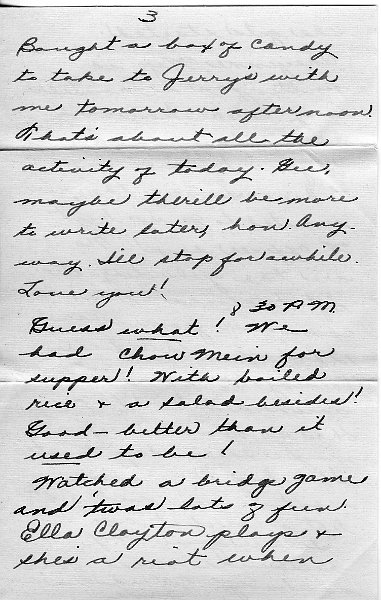 3
Bought a box of candy
to take to Jerry's with
me tomorrow afternoon.
That's about all the
activity of today. Gee,
maybe there'll be more
to write later, hon. Any-
way. I'll stop for awhile.
Love you!
8 30 P.M.
Guess what! We
had Chow Mein for
supper! With boiled
rice & a salad besides!
Good - better than it
used to be!
Watched a bridge game
and 'twas lots of fun.
Ella Clayton plays &
she's a riot when